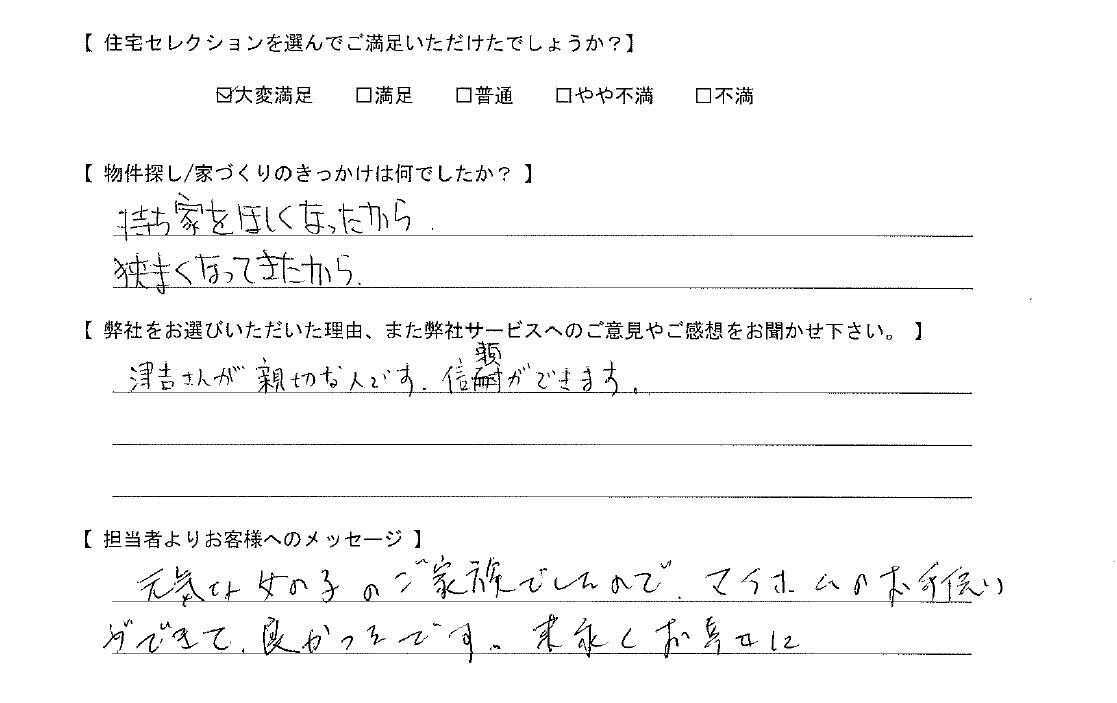 【 住宅セレクションを選んでご満足いただけたでしょうか？】
☑大変満足 □満足 □普通 □やや不満 □不満
【 物件探し/家づくりのきっかけは何でしたか？ 】
持ち家をほしくなったから.
狭まくなってきたから.
【 弊社をお選びいただいた理由、また弊社サービスへのご意見やご感想をお聞かせ下さい。 】
津吉さんが親切な人です. 信頼ができます.
【 担当者よりお客様へのメッセージ 】
元気な女の子のご家族でしたので、マイホームのお手伝い
ができて、良かったです。末永くお幸せに